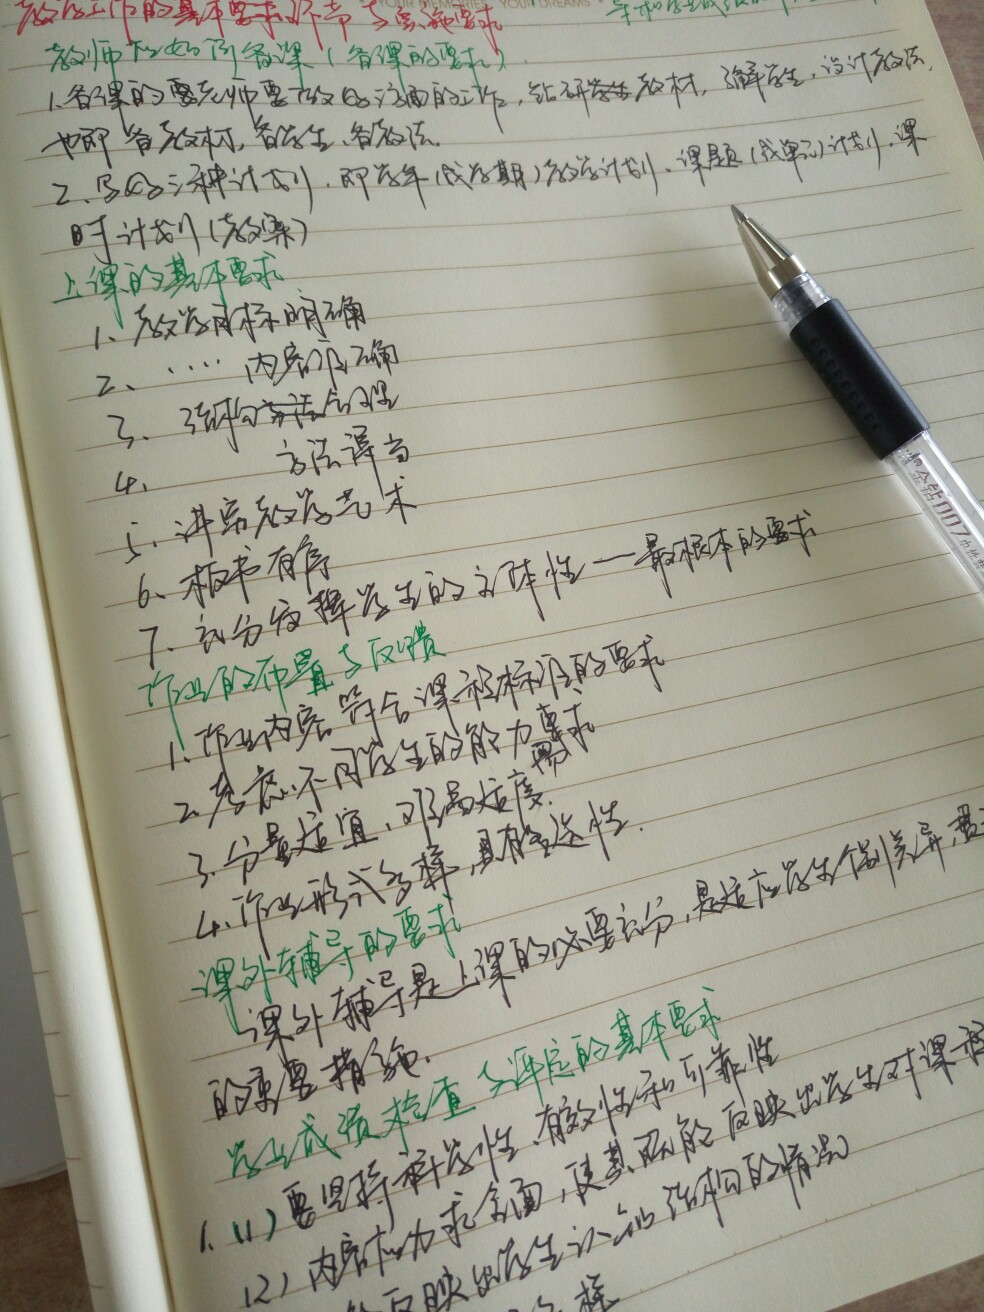 YOUR MEMORIES YOUR DREAMS
教学工作的基本要求 与实施要求
教师应如何备课(备课的要求)
1.备课的要求师要做好方面的工作,钻研教材,了解学生,设计教法,
也即备教材,备学生,备教法.
2.写好三种计划,即学年(或学期)教学计划、课题(或单元)计划、课
时计划(教案)
上课的基本要求
1、教学目标明确
2、.... 内容正确
3、结构合理
4、方法得当
5、讲究教学艺术
6、板书有序
7、充分发挥学生的主体性——最根本的要求
作业的布置与反馈
1.作业内容符合课程标准的要求
2.考虑不同学生的能力要求
需求
3.分量适宜、难易适度.
4.作业形式多样,具有选性.
课外辅导的要求
课外辅导是上课的必要部分,是适应学生个别差异,
的重要措施.
学业成绩检查与评定的基本要求
1.(1)要坚持科学性、有效性和可靠性
(2)内容应力求全面,使其既能反映出学生对课程
反映出学生认知结构的情况
多样